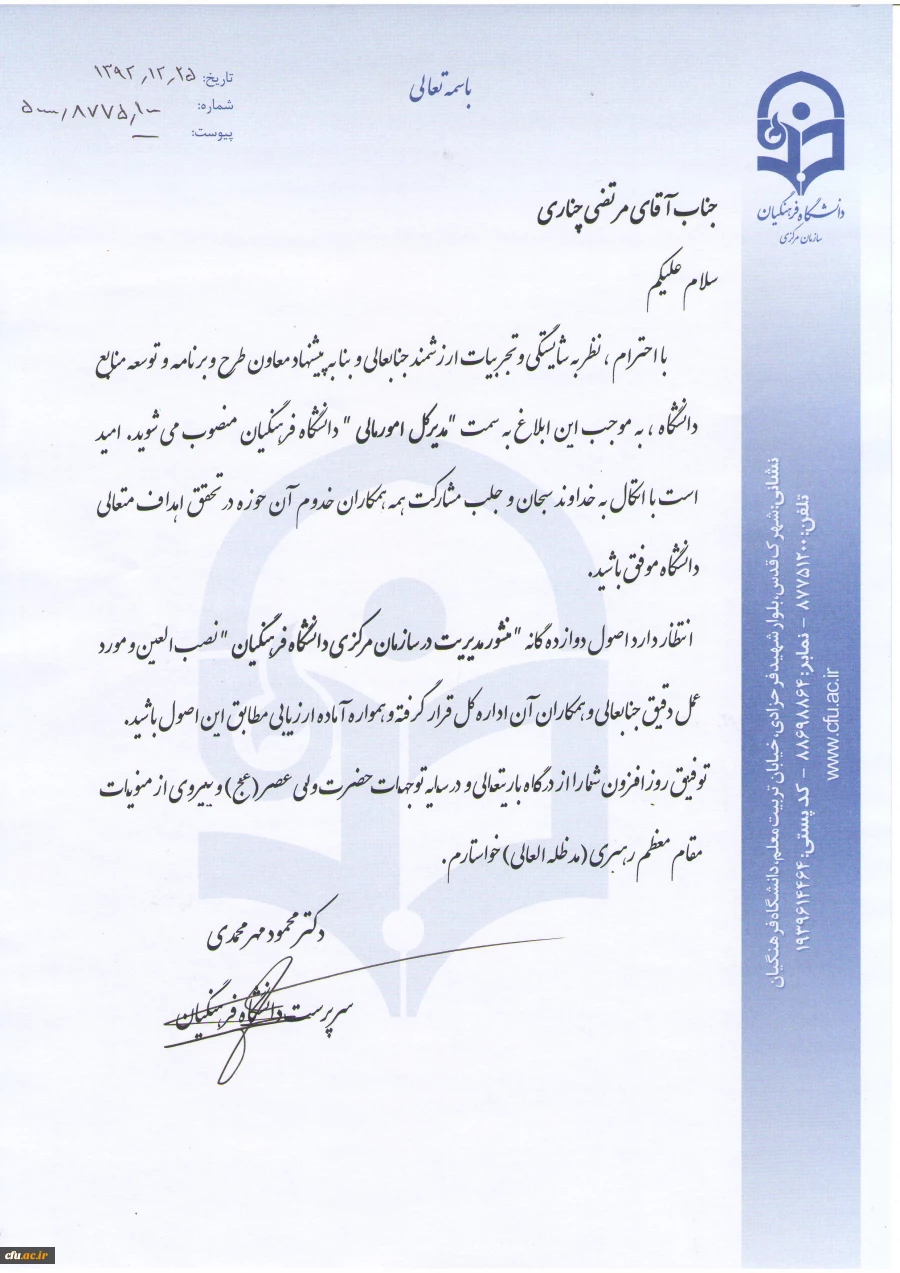 باسمه تعالی
تاریخ: ۱۳۹۲٫۱۲٫۲۵
شماره: ۵۰۰۰۰٫۸۷۷۵٫۱۰۰
پیوست: —
دانشگاه فرهنگیان
سازمان مرکزی
جناب آقای مرتضی چناری
سلام علیکم
با احترام ، نظر به شایستگی و تجربیات ارزشمند جنابعالی و بنا به پیشنهاد معاون طرح و برنامه و توسعه منابع
دانشگاه ، به موجب این ابلاغ به سمت "مدیرکل امورمالی " دانشگاه فرهنگیان منصوب می شوید. امید
است با اتکال به خداوند سبحان و جلب مشارکت همه همکاران خدوم آن حوزه در تحقق اهداف متعالی
دانشگاه موفق باشید.
انتظار دارد اصول دوازده گانه "منشور مدیریت در سازمان مرکزی دانشگاه فرهنگیان " نصب العین و مورد
عمل دقیق جنابعالی و همکاران آن اداره کل قرار گرفته و همواره آماده ارزیابی مطابق این اصول باشید.
توفیق روز افزون شما را از درگاه باریتعالی و در سایه توجهات حضرت ولی عصر (عج) و پیروی از منویات
مقام معظم رهبری (مدظله العالی) خواستارم .
دکتر محمود مهرمحمدی
سرپرست دانشگاه فرهنگیان
نشانی: شهرک قدس، بلوار شهید فرحزادی، خیابان تربیت معلم، دانشگاه فرهنگیان
تلفن: ۸۷۷۵۱۲۰۰ - نمابر: ۸۸۶۹۸۸۶۴ - کد پستی: ۱۹۳۹۶۱۴۴۶۴
www.cfu.ac.ir
cfu.ac.ir